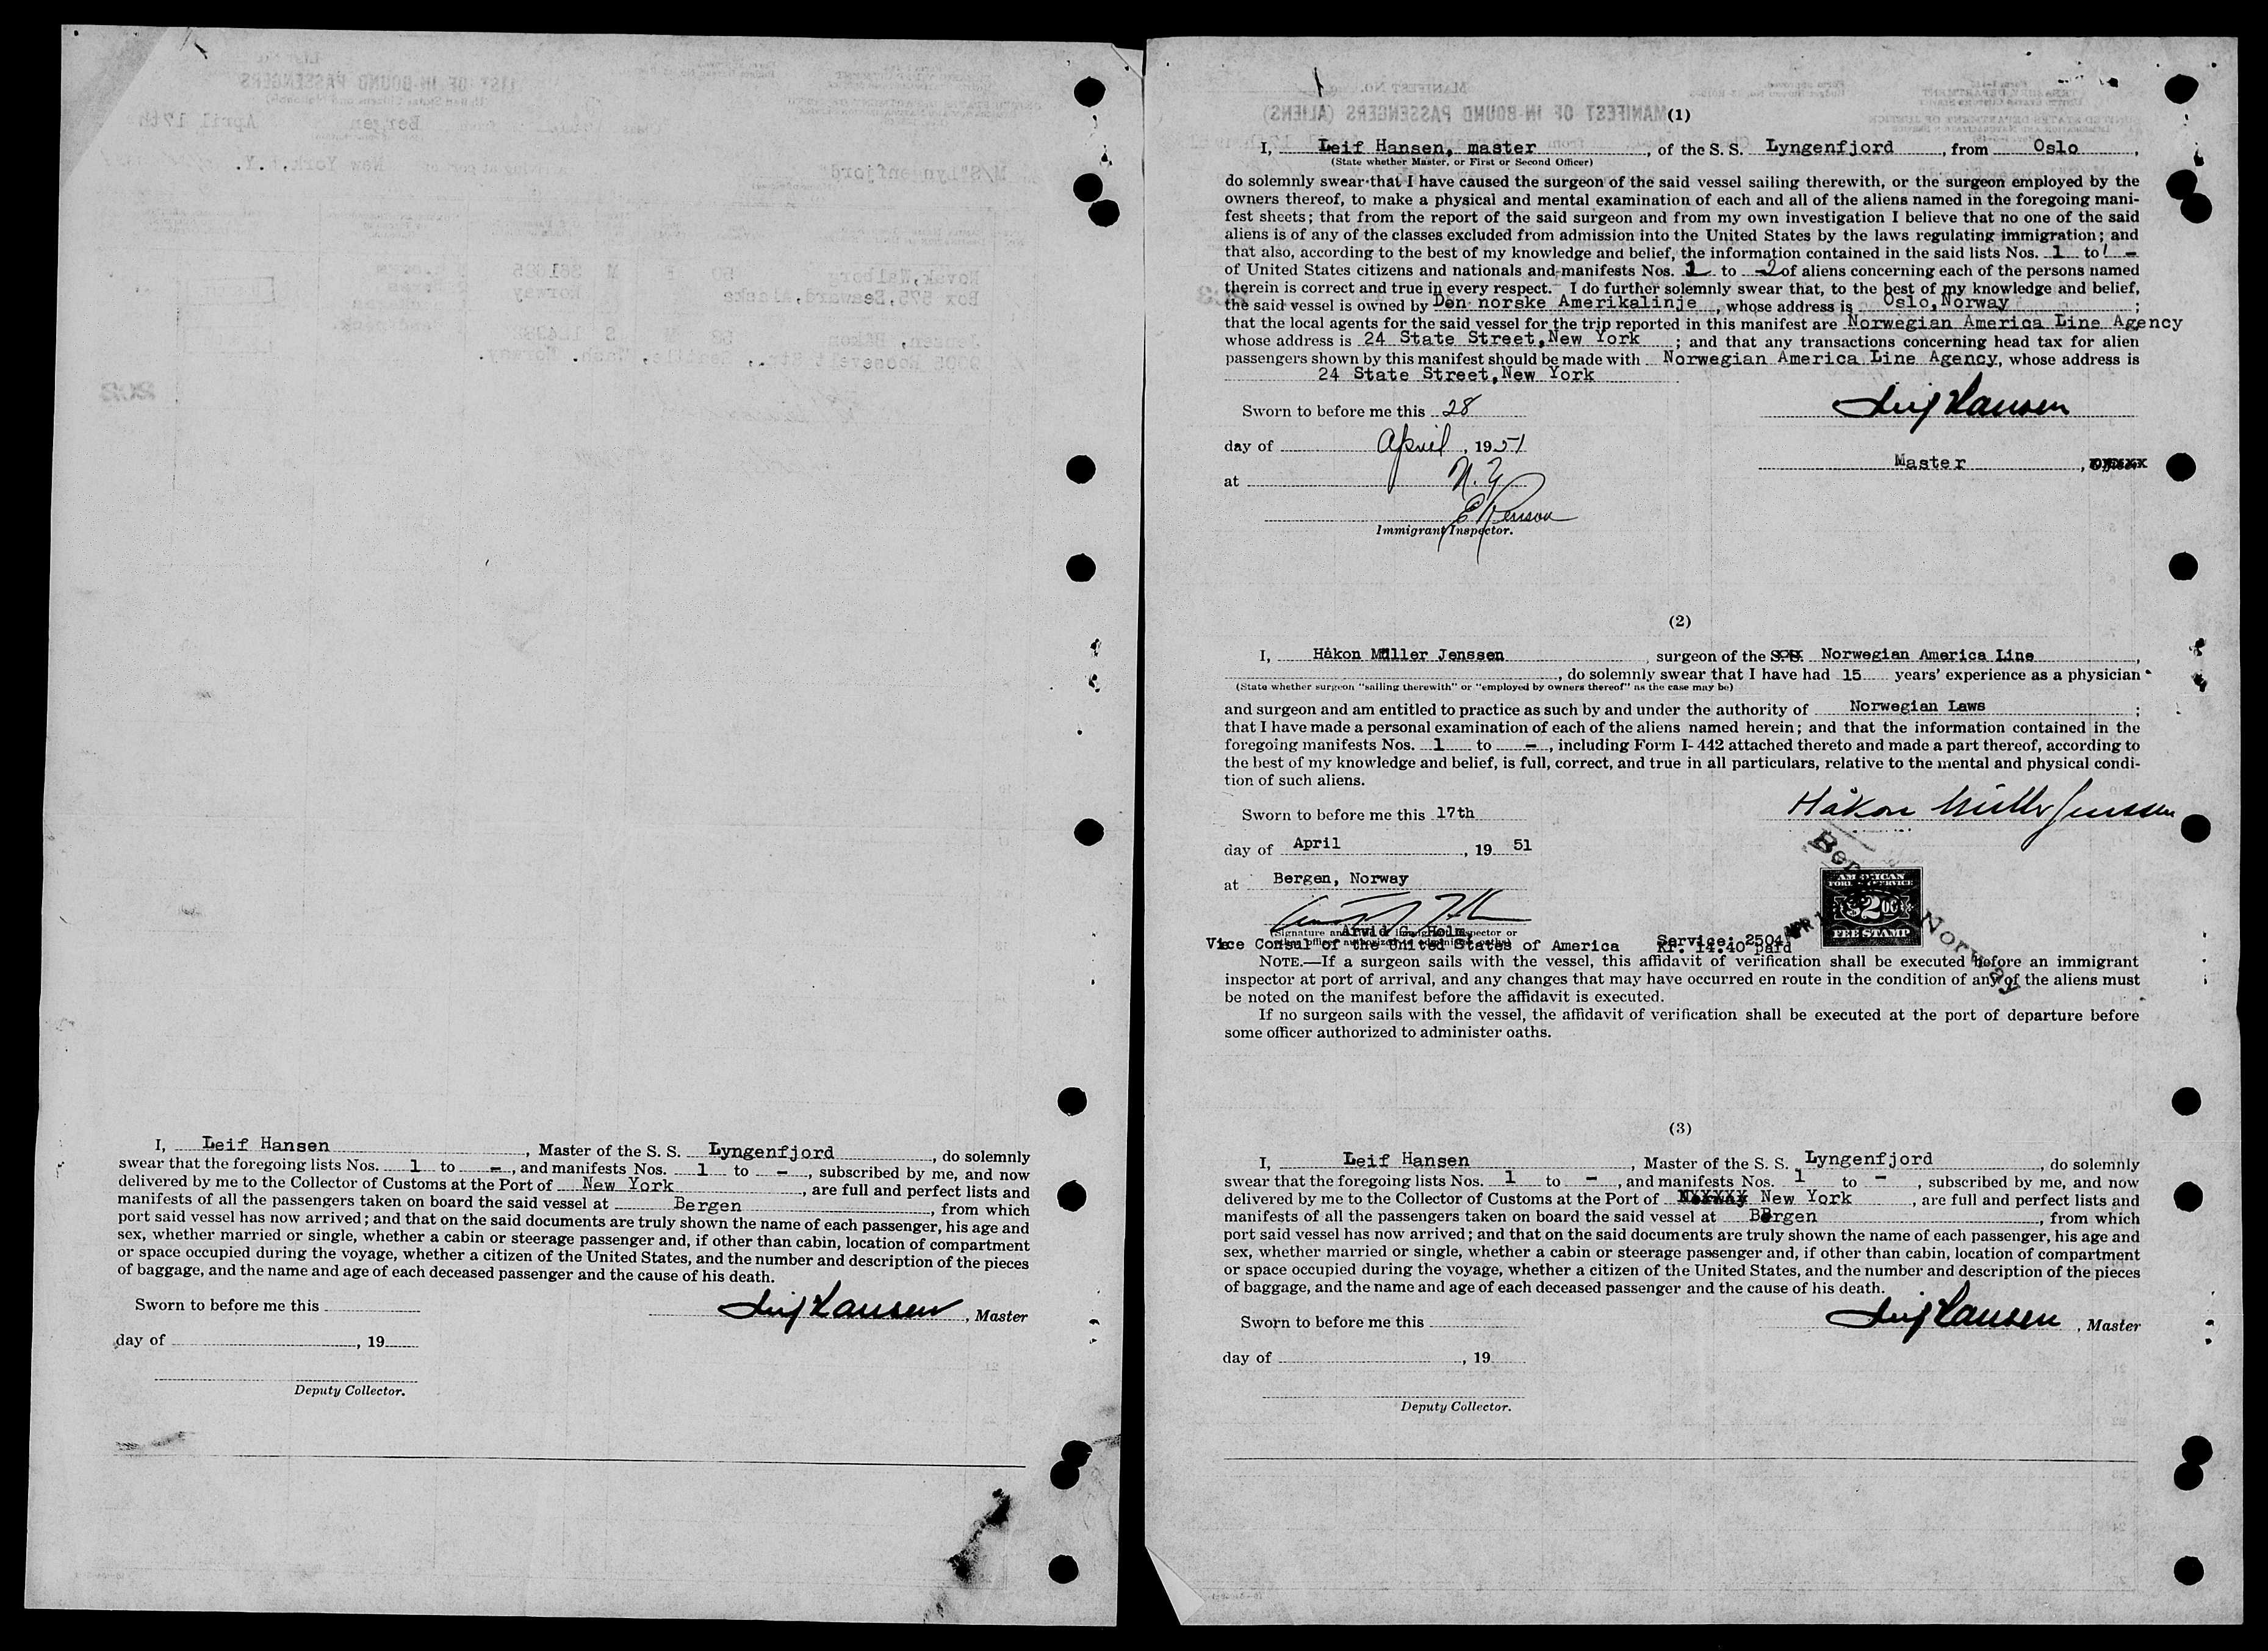 I, Leif Hansen, Master of the S. S. Lyngenfjord, do solemnly
swear that the foregoing lists Nos. 1 to -, and manifests Nos. 1 to -, subscribed by me, and now
delivered by me to the Collector of Customs at the Port of New York, are full and perfect lists and
manifests of all the passengers taken on board the said vessel at Bergen, from which
port said vessel has now arrived; and that on the said documents are truly shown the name of each passenger, his age and
sex, whether married or single, whether a cabin or steerage passenger and, if other than cabin, location of compartment
or space occupied during the voyage, whether a citizen of the United States, and the number and description of the pieces
of baggage, and the name and age of each deceased passenger and the cause of his death.
Sworn to before me this
Leif Hansen, Master
day of , 19
Deputy Collector.
(1)
I, Leif Hansen, master, of the S. S. Lyngenfjord, from Oslo,
(State whether Master, or First or Second Officer)
do solemnly swear that I have caused the surgeon of the said vessel sailing therewith, or the surgeon employed by the
owners thereof, to make a physical and mental examination of each and all of the aliens named in the foregoing mani-
fest sheets; that from the report of the said surgeon and from my own investigation I believe that no one of the said
aliens is of any of the classes excluded from admission into the United States by the laws regulating immigration; and
that also, according to the best of my knowledge and belief, the information contained in the said lists Nos. 1 to 1 -
of United States citizens and nationals and manifests Nos. 1 to 2 of aliens concerning each of the persons named
therein is correct and true in every respect. I do further solemnly swear that, to the best of my knowledge and belief,
the said vessel is owned by Den norske Amerikalinje, whose address is Oslo, Norway;
that the local agents for the said vessel for the trip reported in this manifest are Norwegian America Line Agency
whose address is 24 State Street, New York; and that any transactions concerning head tax for alien
passengers shown by this manifest should be made with Norwegian America Line Agency, whose address is
24 State Street, New York
Sworn to before me this 28
Leif Hansen
day of April, 1951
Master,
at N.Y
Immigrant Inspector.
(2)
I, Håkon Müller Jenssen, surgeon of the S.S. Norwegian America Line,
, do solemnly swear that I have had 15 years' experience as a physician
(State whether surgeon "sailing therewith" or "employed by owners thereof" as the case may be)
and surgeon and am entitled to practice as such by and under the authority of Norwegian Laws;
that I have made a personal examination of each of the aliens named herein; and that the information contained in the
foregoing manifests Nos. 1 to -, including Form I-442 attached thereto and made a part thereof, according to
the best of my knowledge and belief, is full, correct, and true in all particulars, relative to the mental and physical condi-
tion of such aliens.
Håkon Müller Jenssen
Sworn to before me this 17th
day of April, 19 51
at Bergen, Norway
AMERICAN
FOREIGN SERVICE
$2.00
FEE STAMP
Norway
Arvid G. Holm,
Vice Consul of the United States of America
Service: 2504
Kr. 14.40 paid
NOTE.—If a surgeon sails with the vessel, this affidavit of verification shall be executed before an immigrant
inspector at port of arrival, and any changes that may have occurred en route in the condition of any of the aliens must
be noted on the manifest before the affidavit is executed.
If no surgeon sails with the vessel, the affidavit of verification shall be executed at the port of departure before
some officer authorized to administer oaths.
(3)
I, Leif Hansen, Master of the S. S. Lyngenfjord, do solemnly
swear that the foregoing lists Nos. 1 to -, and manifests Nos. 1 to -, subscribed by me, and now
delivered by me to the Collector of Customs at the Port of New York, are full and perfect lists and
manifests of all the passengers taken on board the said vessel at Bergen, from which
port said vessel has now arrived; and that on the said documents are truly shown the name of each passenger, his age and
sex, whether married or single, whether a cabin or steerage passenger and, if other than cabin, location of compartment
or space occupied during the voyage, whether a citizen of the United States, and the number and description of the pieces
of baggage, and the name and age of each deceased passenger and the cause of his death.
Sworn to before me this
Leif Hansen, Master
day of , 19
Deputy Collector.